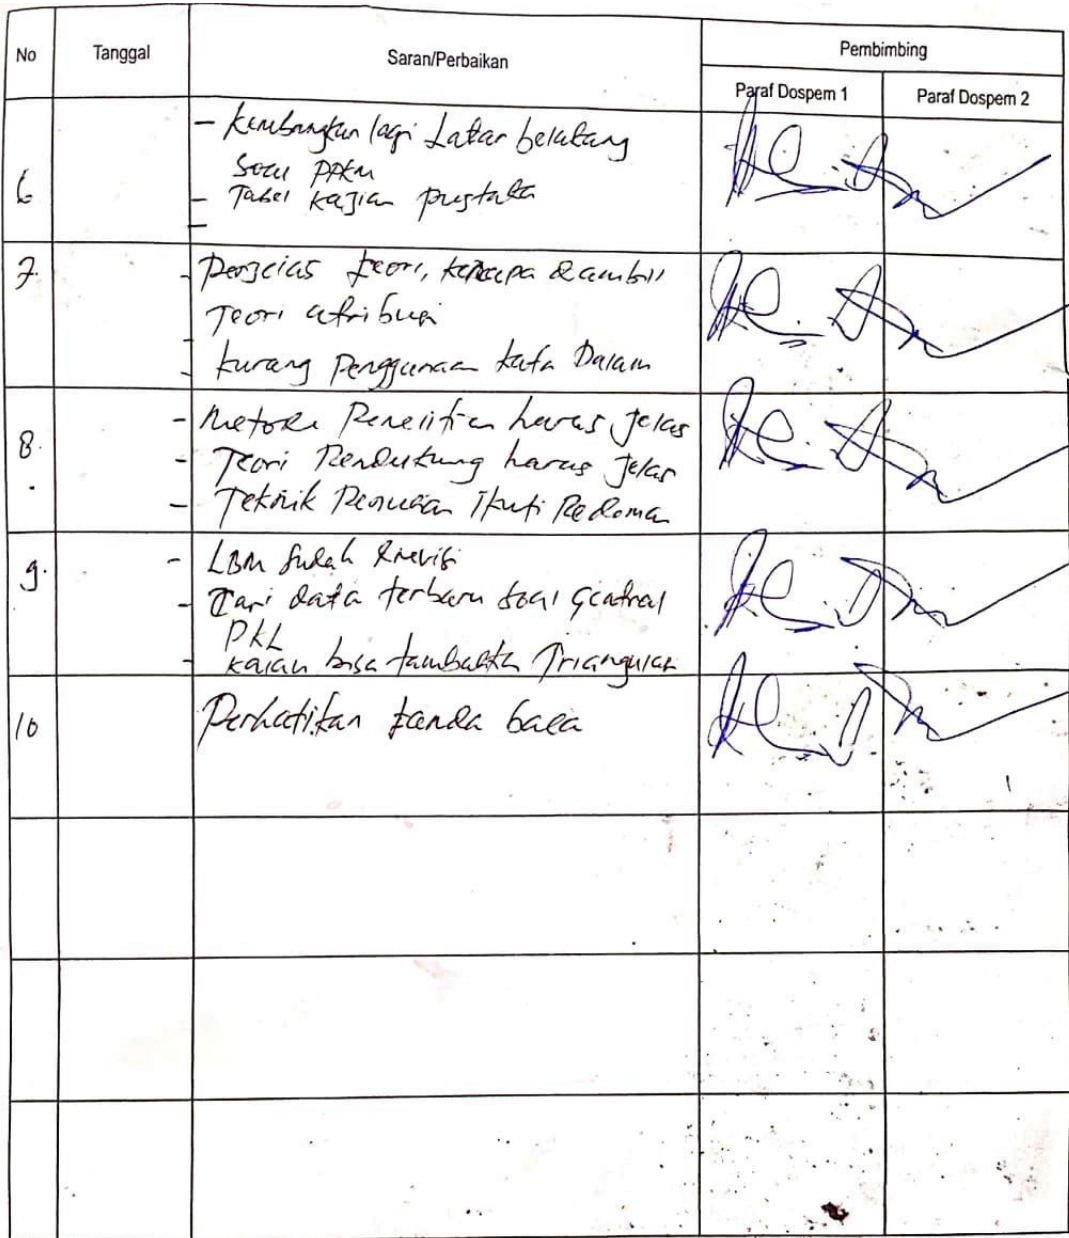 No Tanggal Saran/Perbaikan Pembimbing
Paraf Dospem 1 Paraf Dospem 2
6 - Kembangkan lagi Latar belakang
soal PPKM
- Tabel kajian pustaka
-
7. - Perjelas teori, kenapa diambil
Teori atribusi
-
- kurang Penggunaan kata Dalam
8. - Metode Penelitian harus jelas
- Teori Pendukung harus jelas
- Teknik Penulisan Ikuti Pedoman
9. - LBM sudah direvisi
- Cari data terbaru soal
PKL
- kalau bisa Triangulasi
10 Perhatikan tanda baca